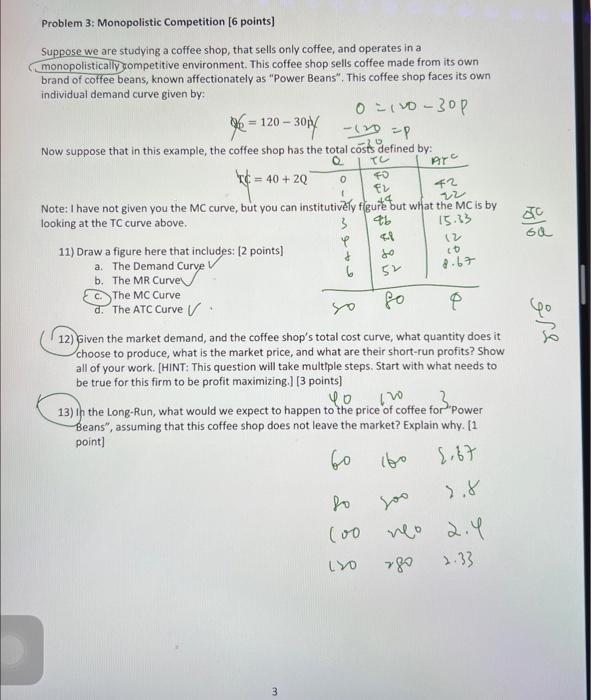 Problem 3: Monopolistic Competition [6 points]
Suppose we are studying a coffee shop, that sells only coffee, and operates in a
monopolistically competitive environment. This coffee shop sells coffee made from its own
brand of coffee beans, known affectionately as "Power Beans". This coffee shop faces its own
individual demand curve given by:
0 = 120 - 30p
= 120 – 30p
-120 = p
-30
Now suppose that in this example, the coffee shop has the total costs defined by:
Q TC ATC
TC = 40 + 2Q
0 40
1 42 42
44 22
Note: I have not given you the MC curve, but you can institutively figure out what the MC is by
looking at the TC curve above.
3 46 15.33
4 48 12
50 10
6 52 8.67
11) Draw a figure here that includes: [2 points]
a. The Demand Curve
b. The MR Curve
c. The MC Curve
d. The ATC Curve
20 80 4
40
20
12) Given the market demand, and the coffee shop's total cost curve, what quantity does it
choose to produce, what is the market price, and what are their short-run profits? Show
all of your work. [HINT: This question will take multiple steps. Start with what needs to
be true for this firm to be profit maximizing.] [3 points]
40 120 3
13) In the Long-Run, what would we expect to happen to the price of coffee for "Power
Beans", assuming that this coffee shop does not leave the market? Explain why. [1
point]
60 160 2.67
80 200
100 240 2.4
120 280 2.33
3